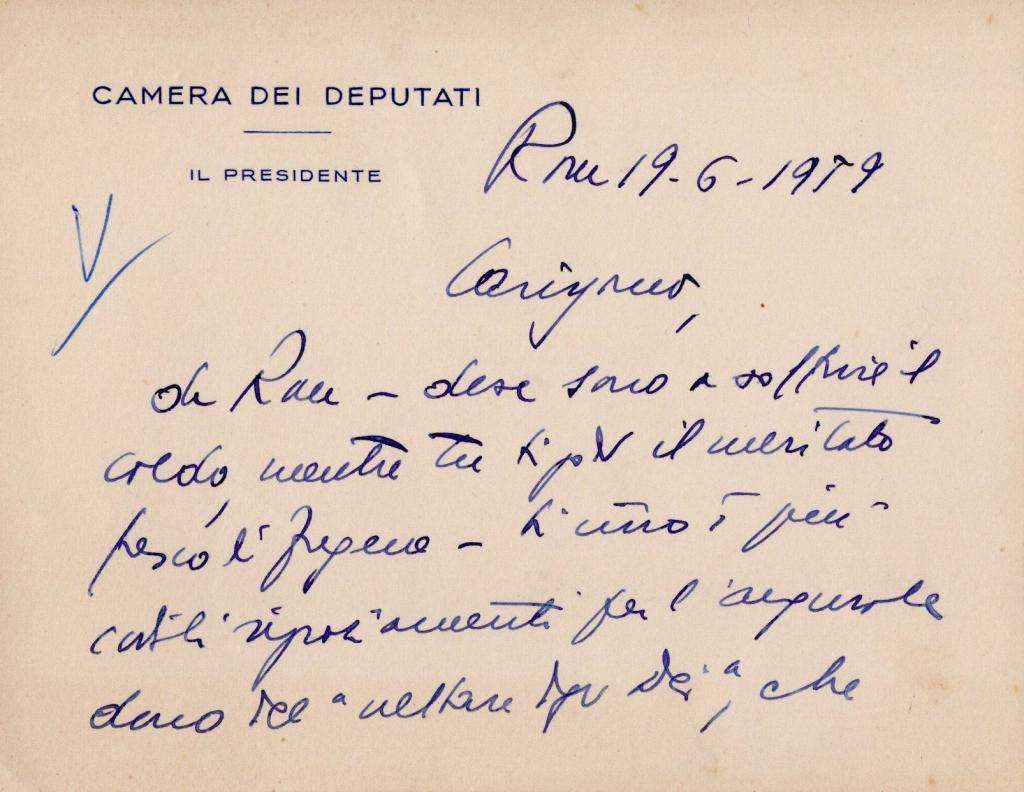 CAMERA DEI DEPUTATI
IL PRESIDENTE
Roma 19-6-1979
Carissimo,
da Roma - dove sono a soffrire il
caldo, mentre tu ti godi il meritato
fresco di Fregene - ti invio i più
cordiali ringraziamenti per l'
dono del "nettare